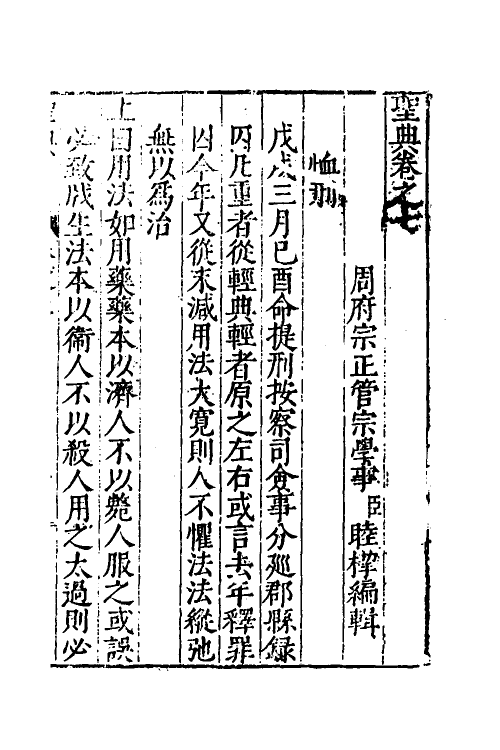 聖典卷之七
周府宗正管宗學事臣睦㮮編輯
恤刑
戊戌三月己酉命提刑按察司僉事分廵郡縣録
囚凡重者從輕典輕者原之左右或言去年釋罪
囚今年又從末減用法太寬則人不懼法法縱弛
無以爲治
上曰用法如用藥藥本以濟人不以斃人服之或誤
必致戕生法本以衛人不以殺人用之太過則必